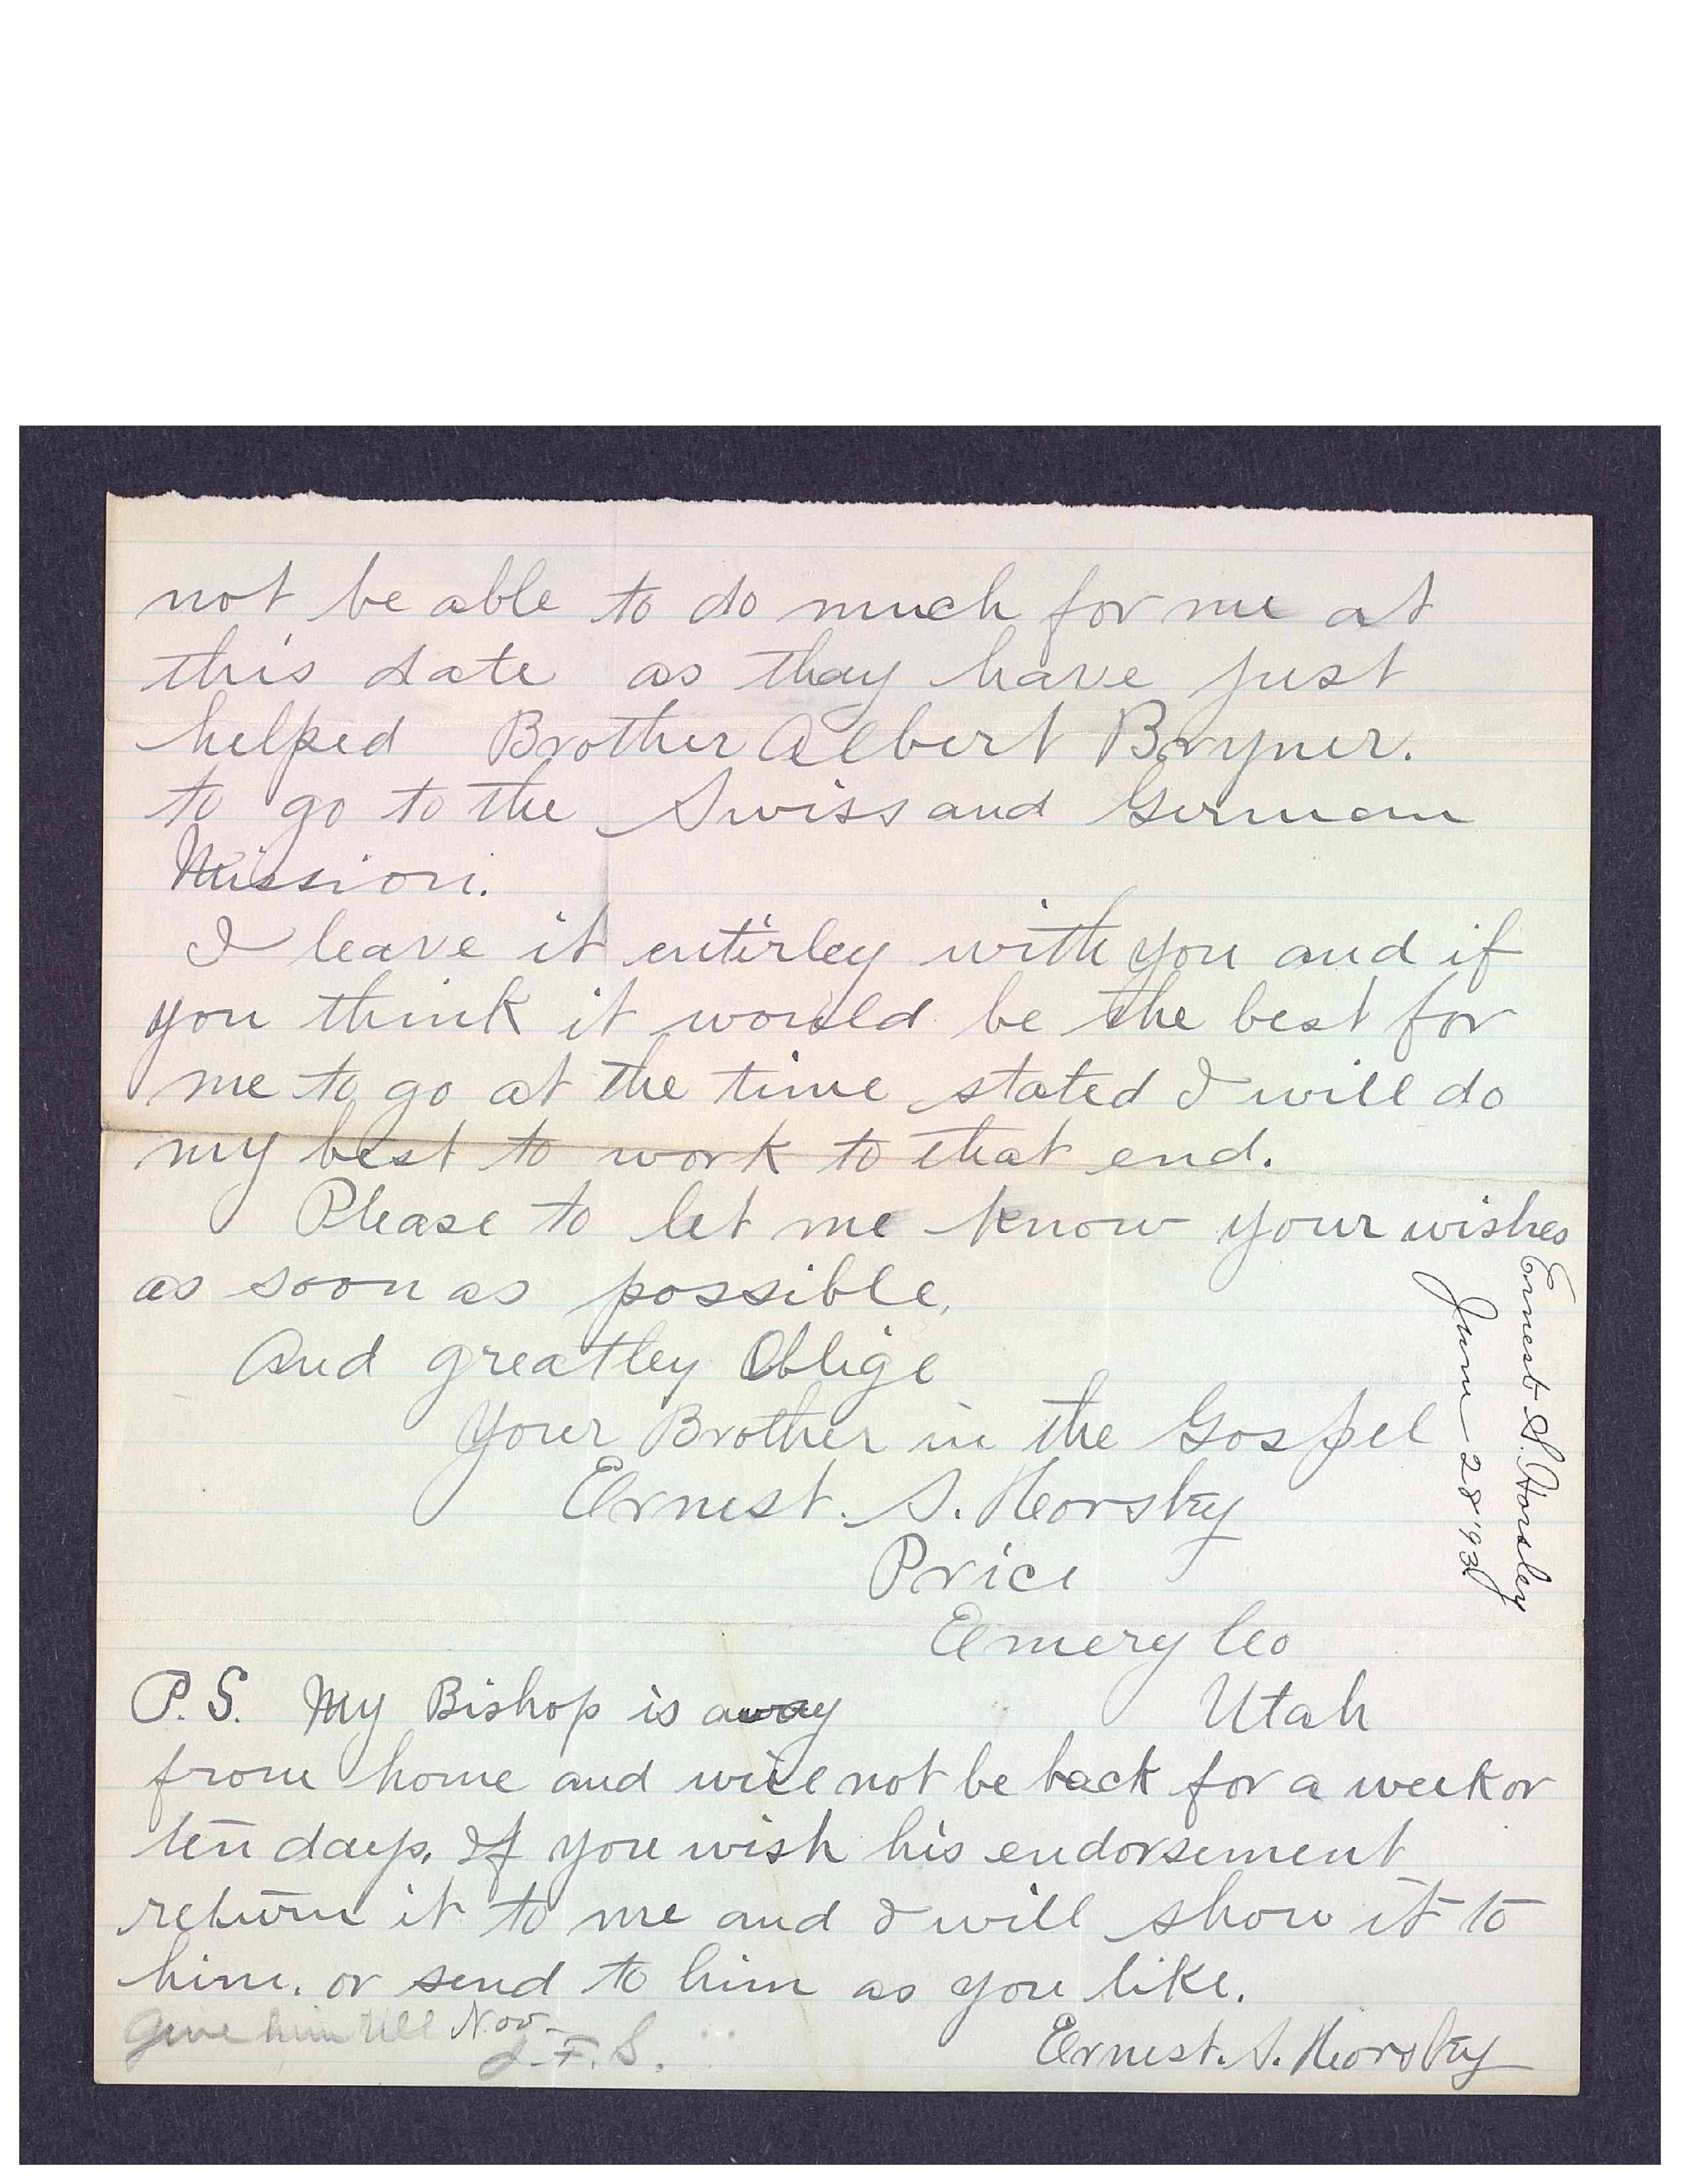 not be able to do much for me at
this date as thay have just
helped Brother Albert Bryner.
to go to the Swiss and German
Mission.
I leave it entirley with you and if
you think it would be the best for
me to go at the time stated I will do
my best to work to that end.
Please to let me know your wishes
as soon as possible,
And greatley Oblige
Your Brother in the Gospel
Ernest. S. Horsley
Price
Emery Co
Utah
P.S. My Bishop is away
from home and will not be back for a week or
ten days. If you wish his endorsement
return it to me and I will show it to
him. or send to him as you like.
Ernest. S. Horsley
Give him till Nov.
J. F. S.
Ernest S. Horsley
June 28 '93